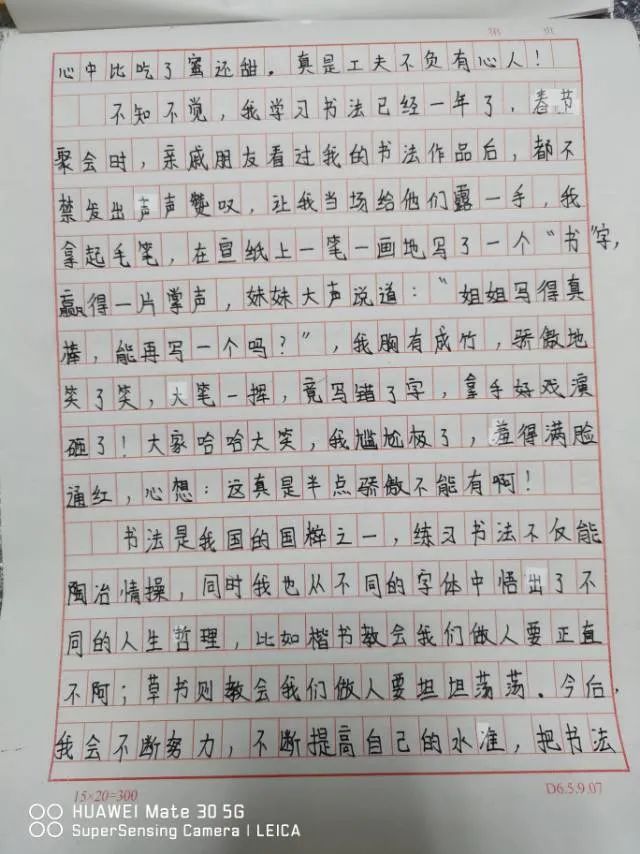 第 页
心中比吃了蜜还甜。真是工夫不负有心人！
不知不觉，我学习书法已经一年了，春节
聚会时，亲戚朋友看过我的书法作品后，都不
禁发出声声赞叹，让我当场给他们露一手，我
拿起毛笔，在宣纸上一笔一画地写了一个“书”字，
赢得一片掌声，妹妹大声说道：“姐姐写得真
棒，能再写一个吗？”，我胸有成竹，骄傲地
笑了笑，大笔一挥，竟写错了字，拿手好戏演
砸了！大家哈哈大笑，我尴尬极了，羞得满脸
通红，心想：这真是半点骄傲不能有啊！
书法是我国的国粹之一，练习书法不仅能
陶冶情操，同时我也从不同的字体中悟出了不
同的人生哲理，比如楷书教会我们做人要正直
不阿；草书则教会我们做人要坦坦荡荡。今后，
我会不断努力，不断提高自己的水准，把书法
15×20=300
D6.5.9.07
HUAWEI Mate 30 5G
SuperSensing Camera | LEICA